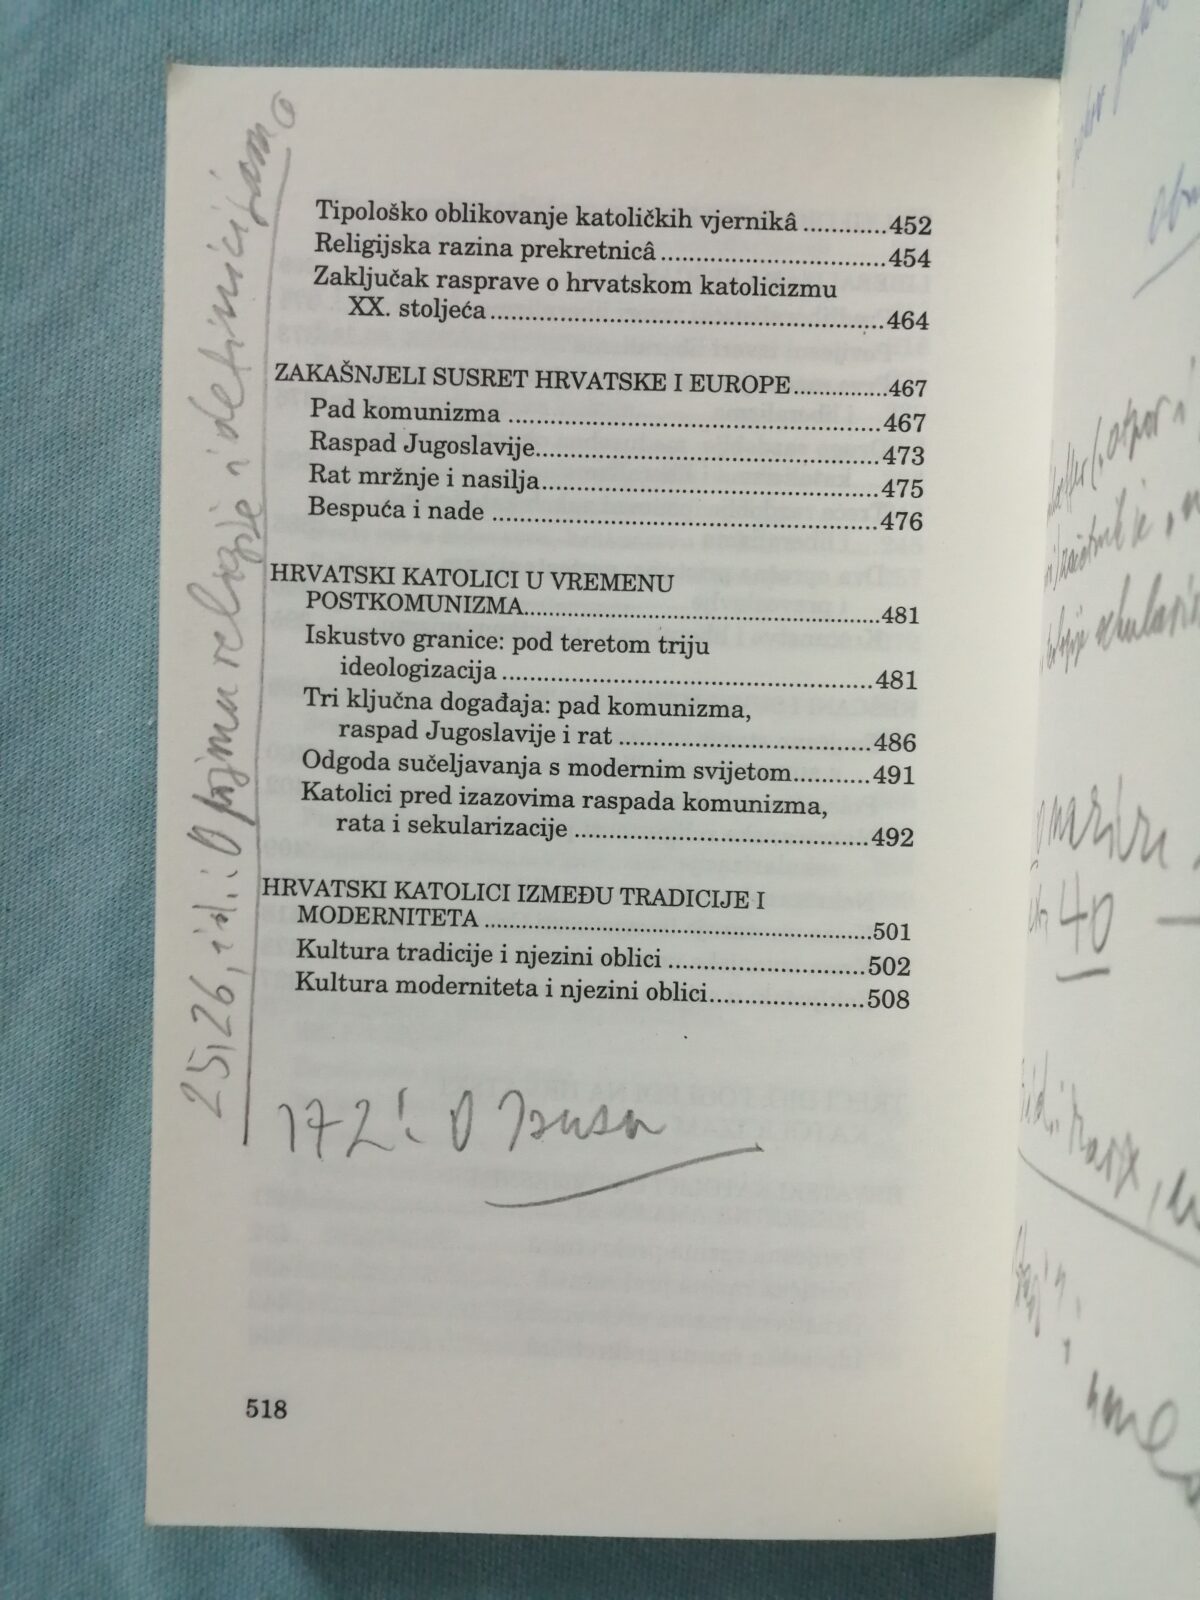 Tipološko oblikovanje katoličkih vjernikâ ............452
Religijska razina prekretnicâ ................................454
Zaključak rasprave o hrvatskom katolicizmu
XX. stoljeća ........................................................464
ZAKAŠNJELI SUSRET HRVATSKE I EUROPE .............467
Pad komunizma ....................................................467
Raspad Jugoslavije................................................473
Rat mržnje i nasilja...............................................475
Bespuća i nade ......................................................476
HRVATSKI KATOLICI U VREMENU
POSTKOMUNIZMA..................................................481
Iskustvo granice: pod teretom triju
ideologizacija ....................................................481
Tri ključna događaja: pad komunizma,
raspad Jugoslavije i rat ....................................486
Odgoda sučeljavanja s modernim svijetom...........491
Katolici pred izazovima raspada komunizma,
rata i sekularizacije ..........................................492
HRVATSKI KATOLICI IZMEĐU TRADICIJE I
MODERNITETA ......................................................501
Kultura tradicije i njezini oblici ..........................502
Kultura moderniteta i njezini oblici......................508
172: O Isusu
518
25, 26, i d.: O pojmu religije i
40